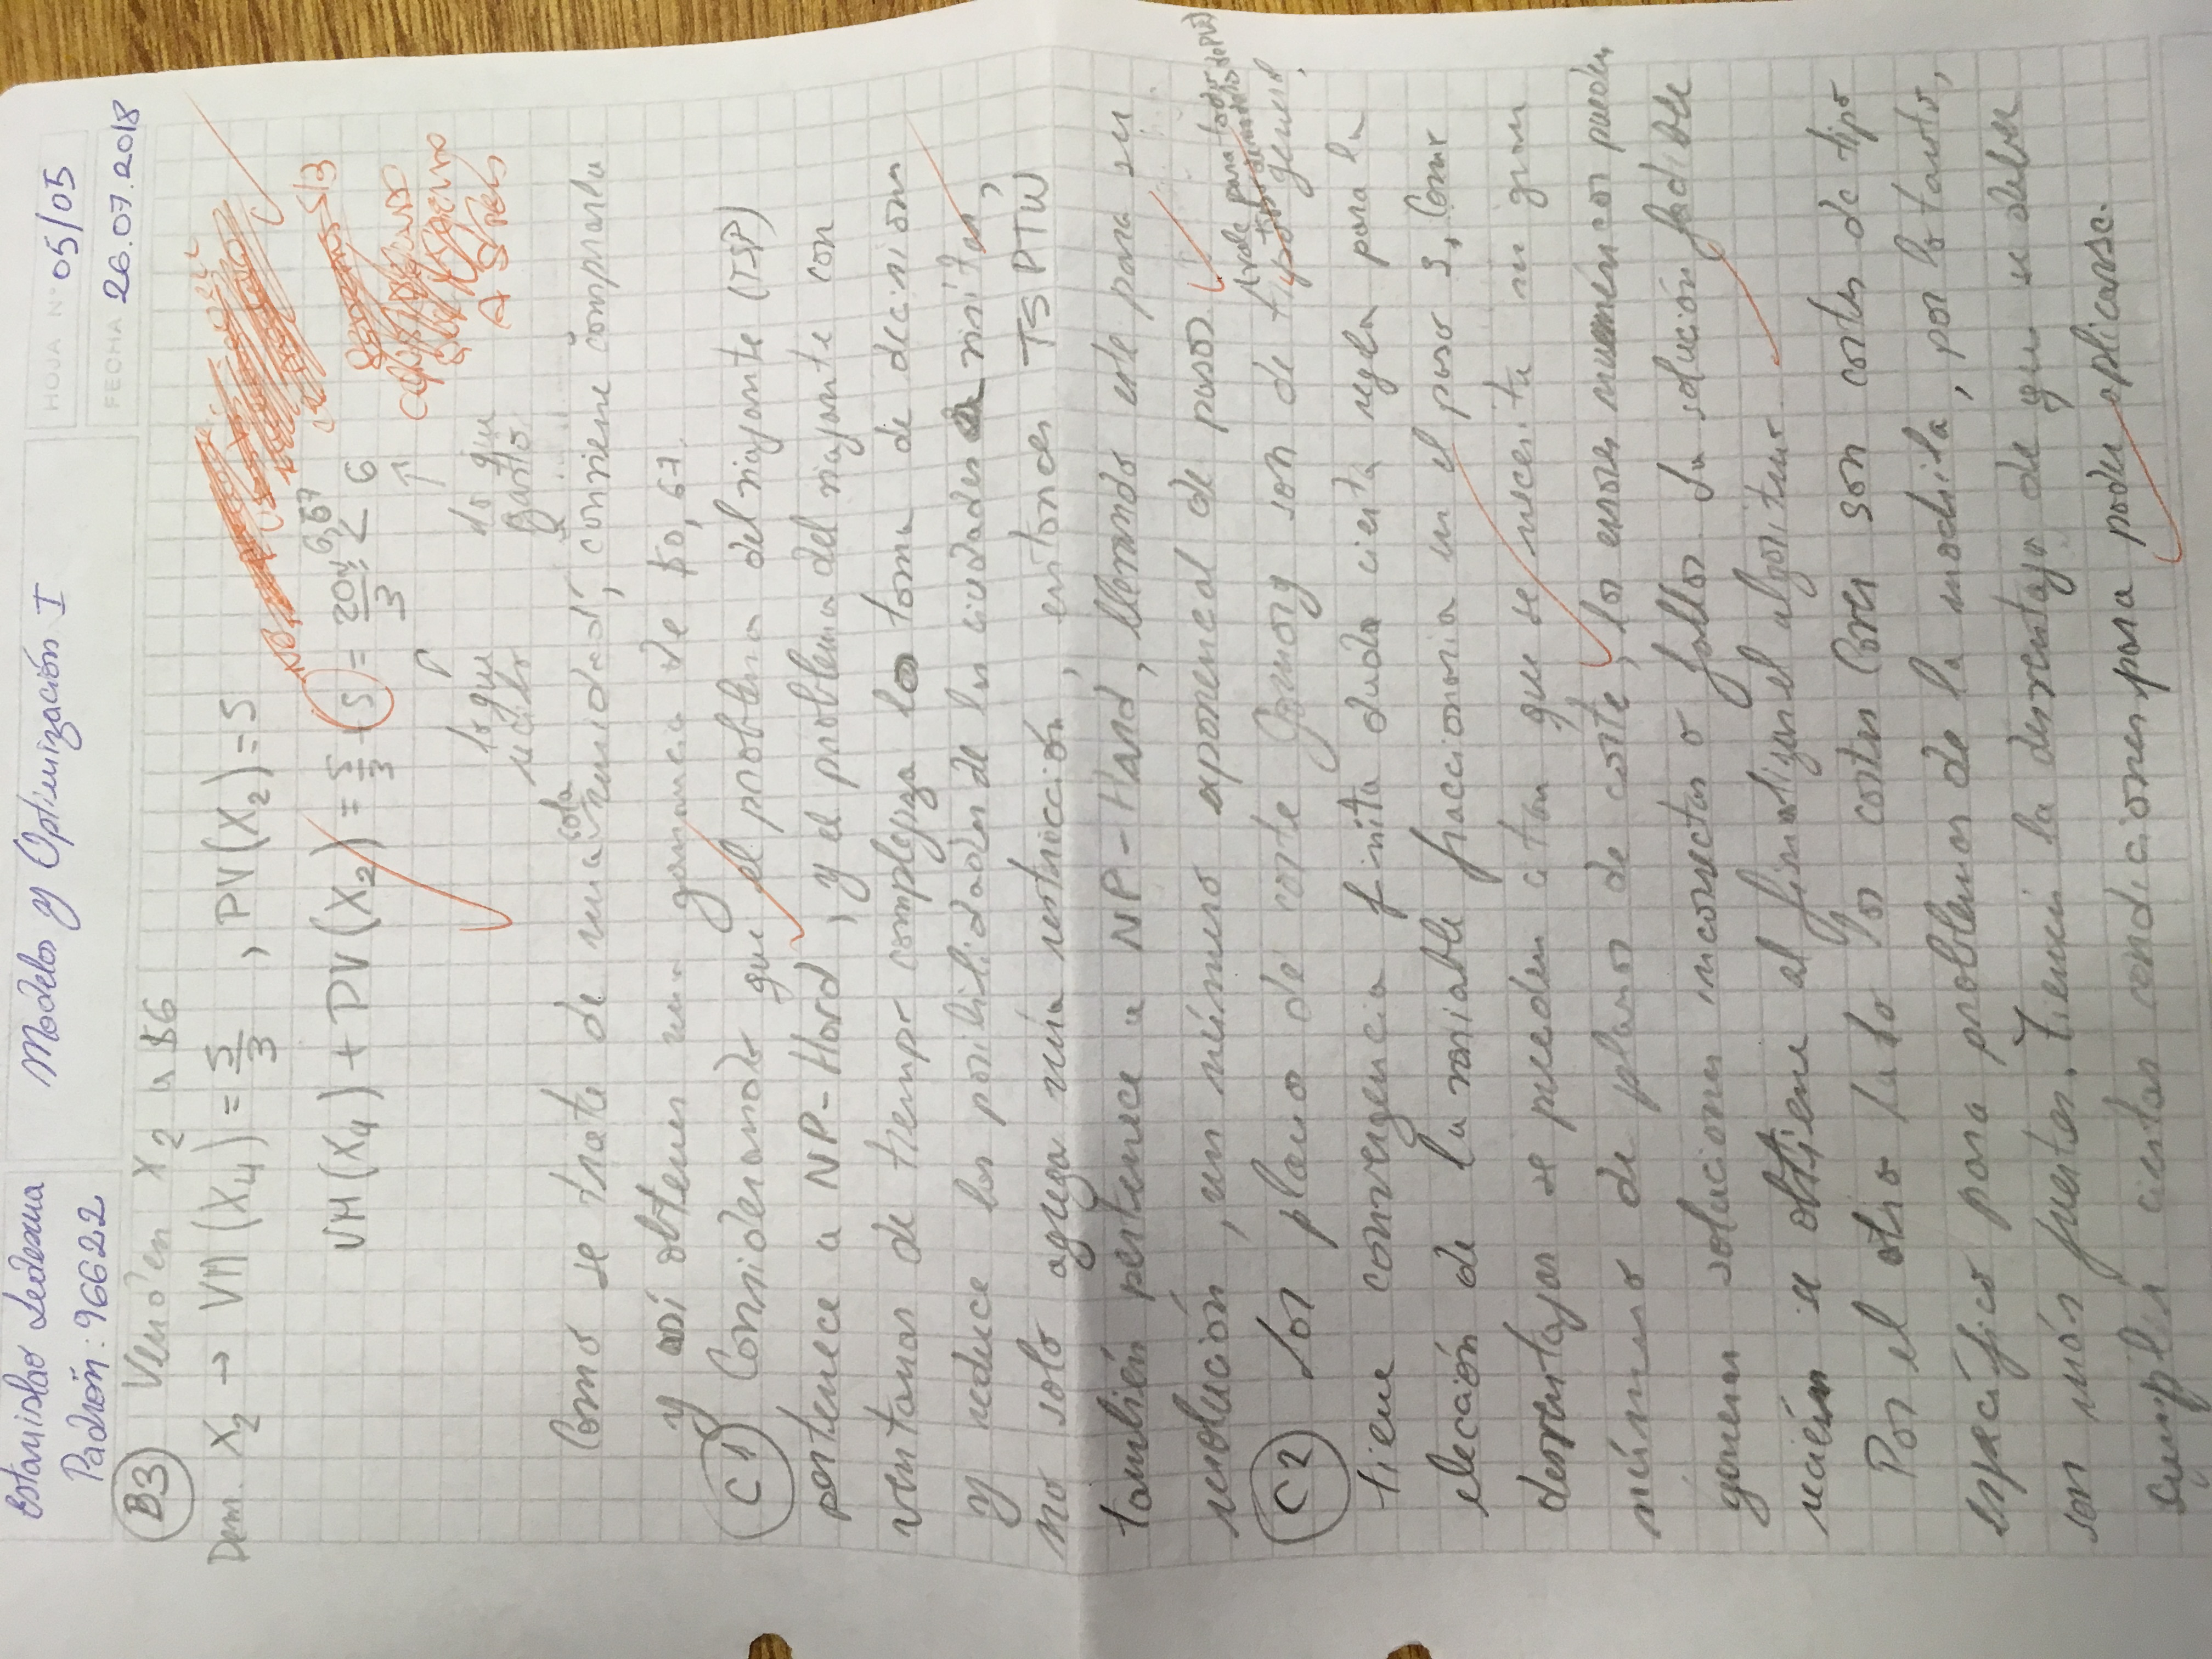 Estanislao Ledesma
Padrón: 96622
Modelos y Optimización I
HOJA N° 05/05
FECHA 26.07.2018
B3 Venden X2 a $6
Dem. X2 → VM(X4) = 5/3, PV(X2) = 5
VM(X4) + PV(X2) = 5/3 + 5 = 20/3 ≈ 6,67 > 6
lo que recibo
lo que gasto
A 5 TRES
Como se trata de una sola unidad, conviene comprarla
y así obtener una ganancia de $0,67.
C1 Consideramos que el problema del viajante (TSP)
pertenece a NP-Hard, y el problema del viajante con
ventanas de tiempo complejiza la toma de decisión
y reduce las posibilidades de las ciudades a visitar,
no solo agrega una restricción, entonces TSPTW
también pertenece a NP-Hard, llevando este para su
resolución, un número exponencial de pasos.
C2 Los plano de corte Gomory son de tipo general,
(vale para todos los problemas de PLE)
tiene convergencia finita dada cierta regla para la
elección de la variable fraccionaria en el paso 2. Como
desventajas se pueden citar que se necesita un gran
número de planos de corte, los errores numéricos pueden
generar soluciones incorrectas o fallos. La solución factible
recién se obtiene al finalizar el algoritmo.
Por el otro lado los cortes Cover son cortes de tipo
específico para problemas de la mochila, por lo tanto,
son más fuertes. Tienen la desventaja de que se deben
cumplir ciertas condiciones para poder aplicarse.